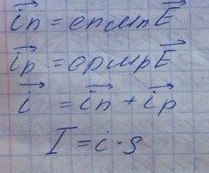 i⃗n = enμnE⃗
i⃗p = epμpE⃗
i⃗ = i⃗n + i⃗p
I = i · s